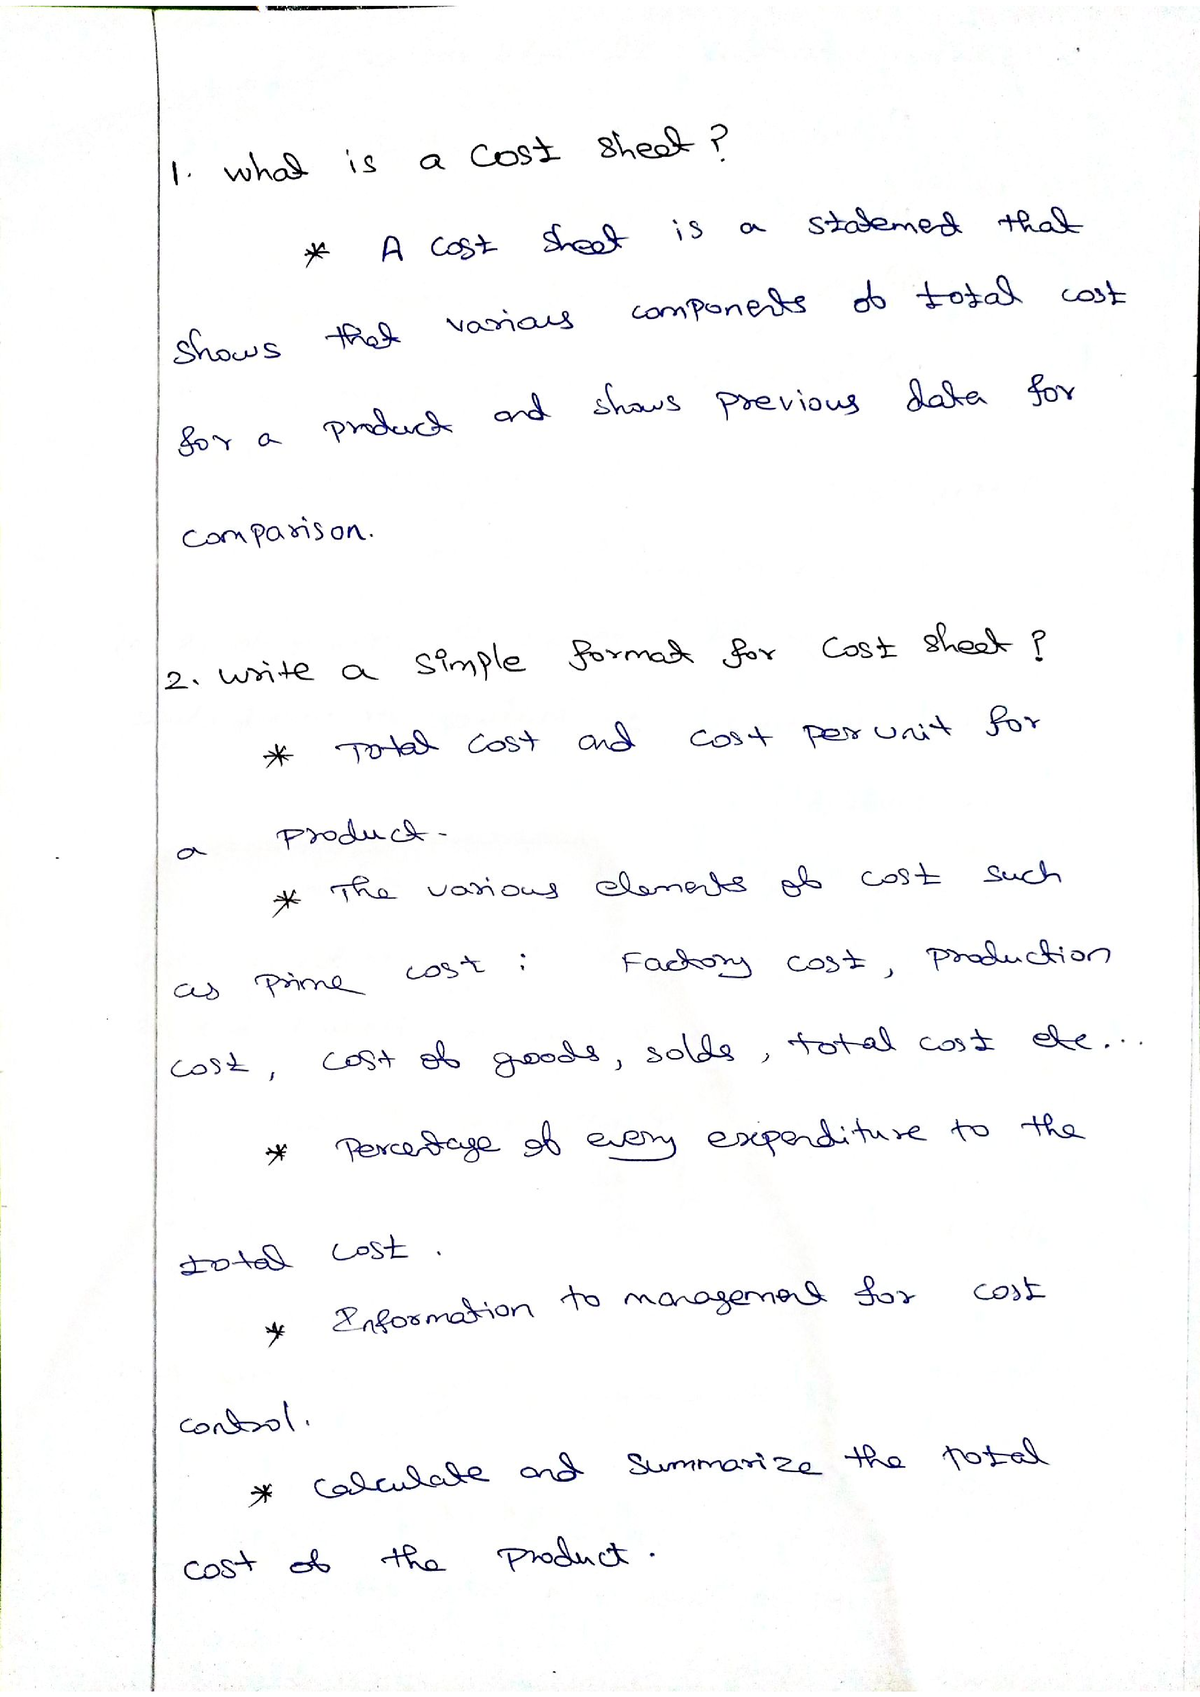 1. what is a cost sheet ?
* A cost sheet is a statement that
shows that various components of total cost
for a product and shows previous data for
comparison.
2. write a simple format for cost sheet ?
* Total cost and cost per unit for
a product.
* The various elements of cost such
as prime cost ; Factory cost, production
cost, cost of goods, solds, total cost etc...
* Percentage of every expenditure to the
total cost.
* Information to management for cost
control.
* calculate and summarize the total
cost of the product.